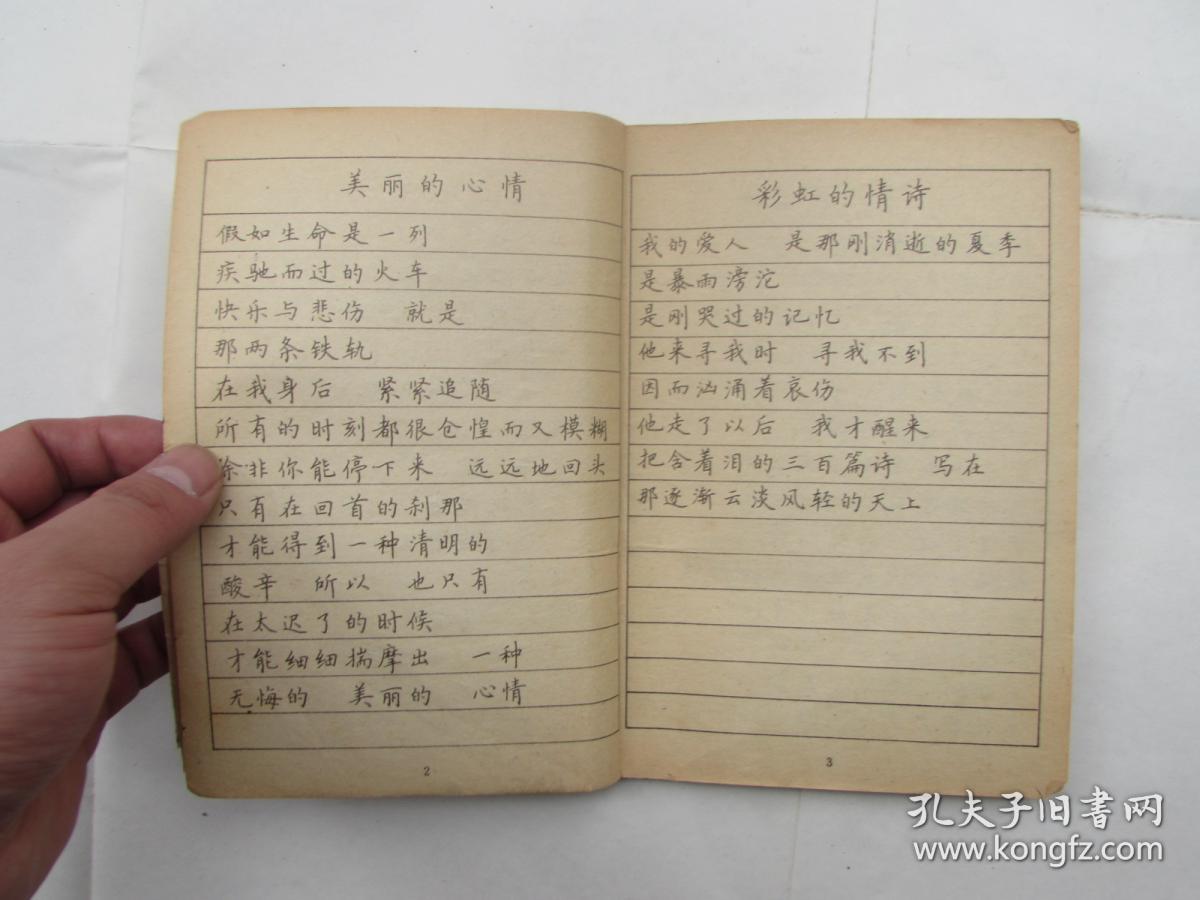 美丽的心情
假如生命是一列
疾驰而过的火车
快乐与悲伤 就是
那两条铁轨
在我身后 紧紧追随
所有的时刻都很仓惶而又模糊
除非你能停下来 远远地回头
只有在回首的刹那
才能得到一种清明的
酸辛 所以 也只有
在太迟了的时候
才能细细揣摩出 一种
无悔的 美丽的 心情
2
彩虹的情诗
我的爱人 是那刚消逝的夏季
是暴雨滂沱
是刚哭过的记忆
他来寻我时 寻我不到
因而汹涌着哀伤
他走了以后 我才醒来
把含着泪的三百篇诗 写在
那逐渐云淡风轻的天上
3
孔夫子旧书网
www.kongfz.com